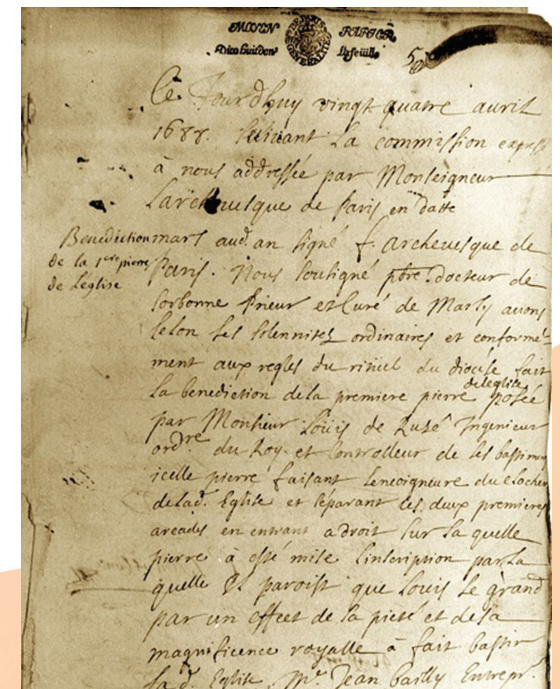 MOYEN PAPIER
Dix huit den.s La feuille
Ce Jourdhuy vingt quatre avril
1688. Suivant La commission expresse
à nous addressée par Monseigneur
Larchevesque de Paris en datte
Benediction
de la 1ere pierre
de L'église
mars aud. an signé f. archevesque de
Paris. Nous soutigné ptre docteur de
Sorbonne Prieur et Curé de Marly avons
selon les solennitez ordinaires et conformé-
ment aux regles du rituel du diocese fait
La benediction de la premiere pierre de leglise posée
par Monsieur Louis de Luzé Ingenieur
ordre du Roy et Controlleur de ses bastimens
icelle pierre faisant Lencoigneure du clocher
de lad. Eglise et séparant les deux premieres
arcades en entrant a droit sur la quelle
pierre à esté mise Linscription par la
quelle Il paroist que Louis Le grand
par un effect de sa pieté et de sa
magnificence royalle à fait bastir
lad. Eglise, Mr. Jean bailly Entrepr.